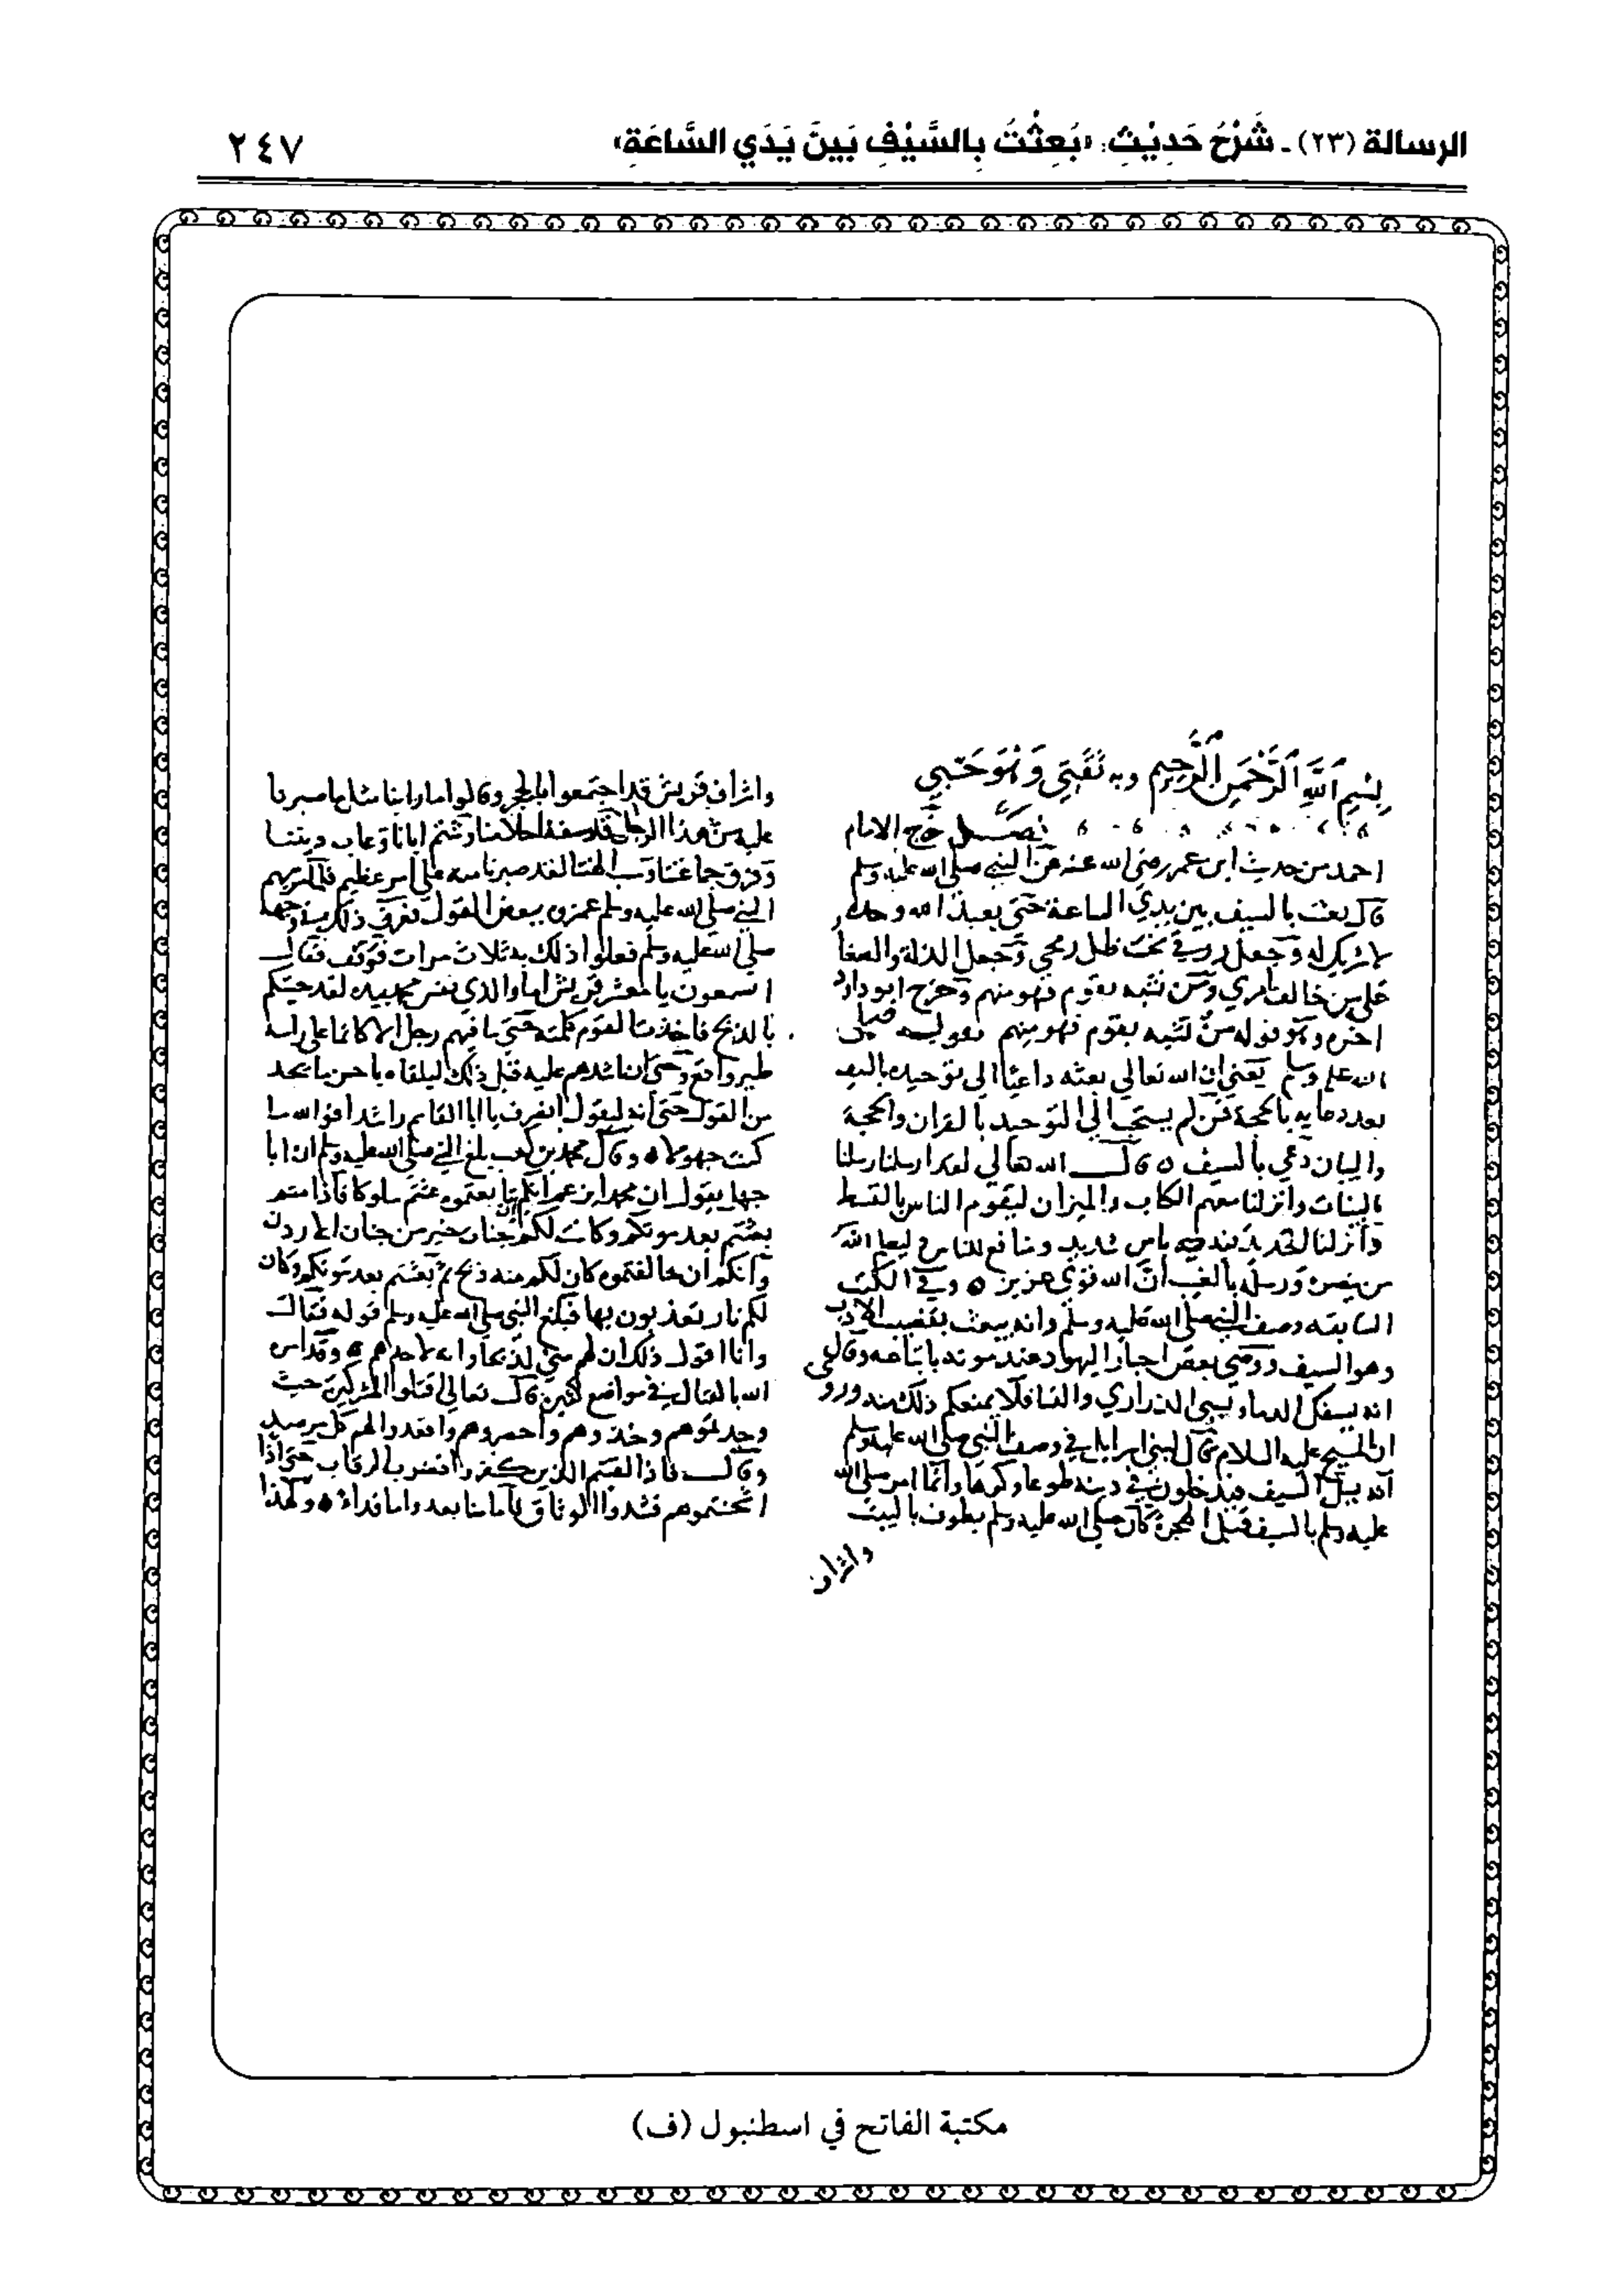 الرسالة (٢٣) - شَرْحُ حَدِيْثِ: «بُعِثْتُ بِالسَّيْفِ بَينَ يَدَي السَّاعَةِ» ٢٤٧
بِسْمِ اللَّهِ الرَّحْمَنِ الرَّحِيمِ وبه ثقتي وَهُوَ حَسْبِي
فصل خرج الامام
احمد من حديث ابن عمر رضي الله عنه عن النبي صلى الله عليه وسلم
قال بعثت بالسيف بين يدي الساعة حتى يعبد الله وحده
لا شريك له وجعل رزقي تحت ظل رمحي وجعل الذلة والصغار
على من خالف امري ومن تشبه بقوم فهو منهم وخرج ابو داود
اخره وهو قوله من تشبه بقوم فهو منهم فقوله صلى
الله عليه وسلم يعني ان الله تعالى بعثه داعيا الى توحيده بالسيف
بعد دعايه بالحجة فمن لم يستجب الى التوحيد بالقران والحجة
والبيان دعي بالسيف ٥ قال الله تعالى لقد ارسلنا رسلنا
بالبينات وانزلنا معهم الكتاب والميزان ليقوم الناس بالقسط
وأنزلنا الحديد فيه باس شديد ومنافع للناس وليعلم الله
من ينصره ورسله بالغيب ان الله قوي عزيز ٥ وفي الكتب
السابقه وصف النبي صلى الله عليه وسلم وانه يبعث بقضيب الادب
وهو السيف ووصى بعض احبار اليهود عند موته باتباعه وقال
انه يسفك الدماء ويسبي الذراري والنسا فلا يمنعكم ذلك منه وروي
ان المسيح عليه السلام قال لبني اسرايل في وصف النبي صلى الله عليه وسلم
انه يسل السيف فيدخلون في دينه طوعا وكرها وانما امر صلى الله
عليه وسلم بالسيف قبل الهجرة كان صلى الله عليه وسلم يطوف بالبيت
واشراف
واشراف قريش قد اجتمعوا بالحجر وقالوا ما راينا مثل ما صبرنا
عليه من هذا الرجل قد سفه احلامنا وشتم اباناو عاب ديننا
وفرق جماعتنا وسب الهتنا لقد صبرنا منه على امر عظيم فلما مر بهم
النبي صلى الله عليه وسلم غمزوه ببعض القول فعرف ذلك في وجهه
صلى الله عليه وسلم فعلوا ذلك به ثلاث مرات فوقف فقال
اتسمعون يا معشر قريش اما والذي نفس محمد بيده لقد جيتكم
بالذبح فاخذت القوم كلمته حتى ما فيهم رجل الا كانما على راسه
طير واقع وحتى ان اشدهم عليه قبل ذلك ليلقاه باحسن ما يجد
من القول حتى انه ليقول انصرف يا ابا القاسم راشدا فوالله ما
كنت جهولا ٥ وقال محمد بن كعب بلغ النبي صلى الله عليه وسلم ان ابا
جهل يقول ان محمدا يزعم انكم ان بايعتموه عشتم ملوكا فاذا متم
بعثتم بعد موتكم وكانت لكم جنان خير من جنان الاردن
وانكم ان خالفتموه كان لكم منه ذبح ثم بعثتم بعد موتكم وكان
لكم نار تعذبون بها فبلغ النبي صلى الله عليه وسلم قوله فقال
وانا اقول ذلك ان لهم مني لذبحا وانه لاحدهم ٥ وقد امر
الله بالقتال في مواضع كثيره قال تعالى فاقتلوا المشركين حيث
وجدتموهم وخذوهم واحصروهم واقعدوا لهم كل مرصد
وقال فاذا لقيتم الذين كفروا فضرب الرقاب حتى اذا
اثخنتموهم فشدوا الوثاق فاما منا بعد واما فداء ٥ ولهذا
مكتبة الفاتح في اسطنبول (ف)